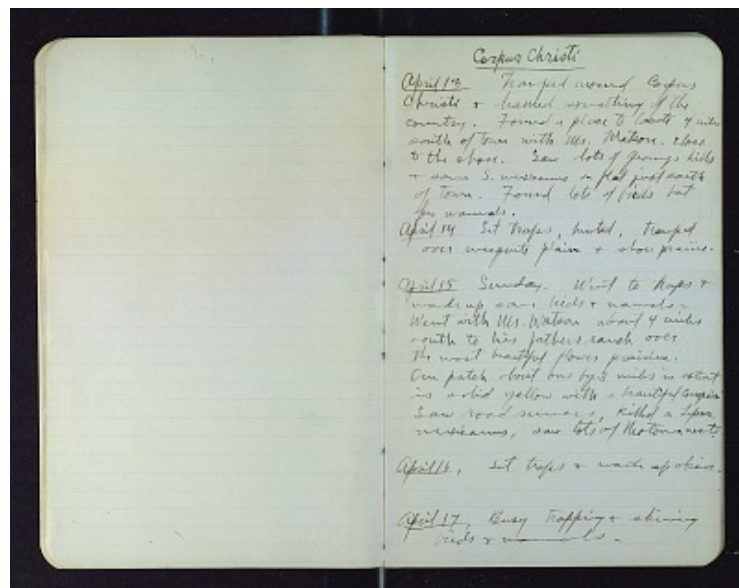 Corpus Christi
April 13 Tramped around Corpus
Christi + learned something of the
country. Found a place to locate 4 miles
south of town with Mr. Watson. close
to the shore. Saw lots of geomys hills
+ some S. mexicanus in flat just south
of town. Found lots of birds but
few mammals.
April 14 Set traps, hunted, tramped
over mesquite plain + shore prairie.
April 15 Sunday. Went to traps +
made up some birds + mammals -
Went with Mr. Watson about 4 miles
south to his fathers ranch over
the most beautiful flower prairies.
One patch about one by 3 miles in extent
is solid yellow with a beautiful
Saw road runners, killed a
mexicanus, saw lots of Neotoma nests.
April 16, Set traps + made up skins.
April 17, Busy trapping + skinning
birds + mammals -